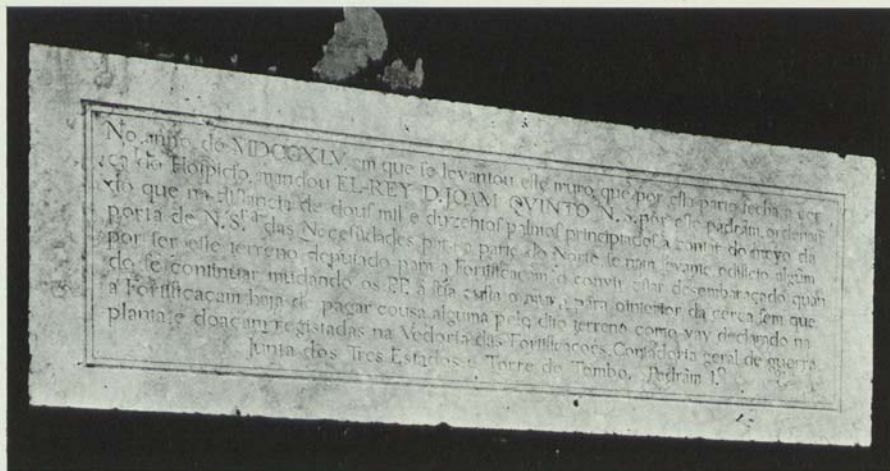 No anno de MDCCXLV. em que ſe levantou eſte muro que por eſta parte fecha a cer
ca do Hoſpicio, mandou EL-REY D. JOAM QVINTO N. S. pôr eſte padrâm, ordenan
do que na diſtancia de douſ mil e duzentoſ palmoſ principiadoſ a contar do meyo da
porta de N. S.ra das Neceſſidades para a parte do Norte ſe nam levante edificio algûm
por ſer eſte terreno deputado para a Fortificaçam, e convir eſtar desembaraçado quan
do ſe continuar mudando os PP. á ſua cuſta o muro para o interior da cerca ſem que
a Fortificaçam haja de pagar couſa alguma pelo dito terreno como vay declarado na
planta, e doaçam regiſtadas na Vedoria das Fortificaçoẽs, Contadoria geral de guerra
Junta dos Tres Eſtados e Torre do Tombo. Padrâm I.º